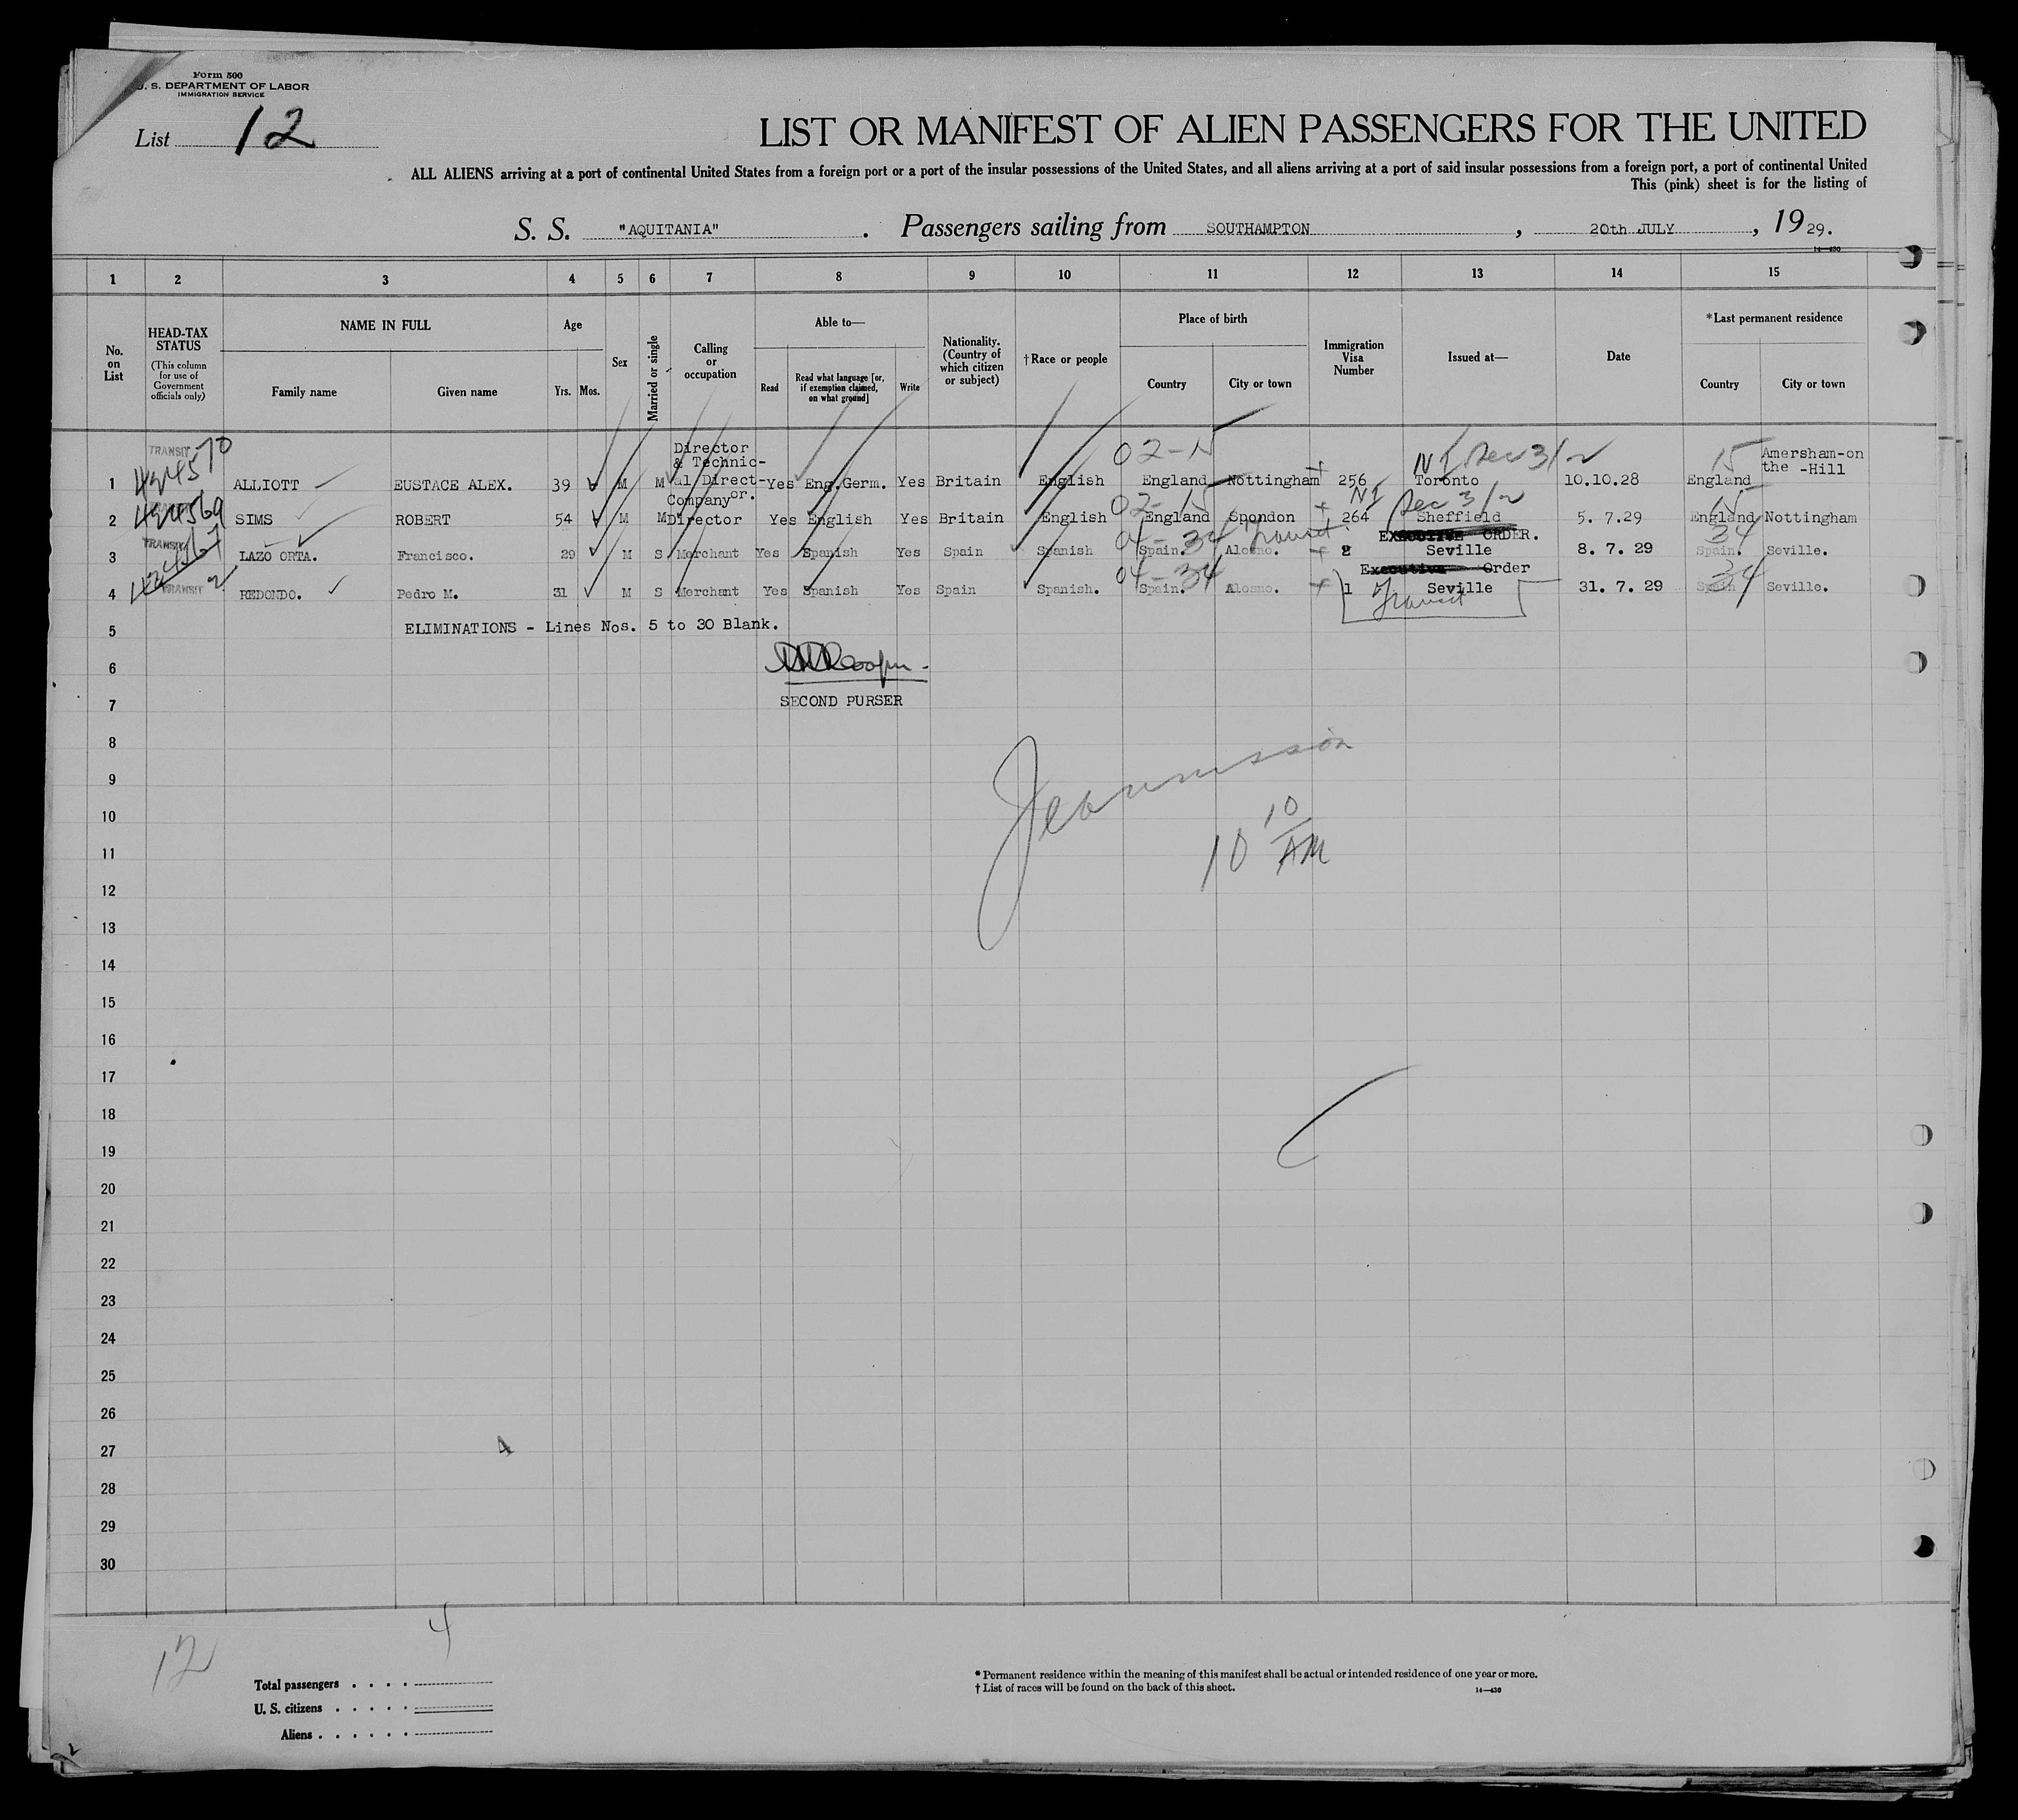 Form 500
U. S. DEPARTMENT OF LABOR
IMMIGRATION SERVICE
List 12
LIST OR MANIFEST OF ALIEN PASSENGERS FOR THE UNITED
ALL ALIENS arriving at a port of continental United States from a foreign port or a port of the insular possessions of the United States, and all aliens arriving at a port of said insular possessions from a foreign port, a port of continental United
This (pink) sheet is for the listing of
S. S. "AQUITANIA". Passengers sailing from SOUTHAMPTON, 20th JULY, 1929.
14—430
1 2 3 4 5 6 7 8 9 10 11 12 13 14 15
No. on List
HEAD-TAX STATUS
(This column for use of Government officials only)
NAME IN FULL
Family name Given name
Age
Yrs. Mos.
Sex
Married or single
Calling or occupation
Able to—
Read
Read what language [or, if exemption claimed, on what ground]
Write
Nationality. (Country of which citizen or subject)
†Race or people
Place of birth
Country City or town
Immigration Visa Number
Issued at—
Date
*Last permanent residence
Country City or town
TRANSIT 424570 02-15 NI Dec 31/2 15
1 ALLIOTT EUSTACE ALEX. 39 M M Director & Technic-al Direct-or. Yes Eng. Germ. Yes Britain English England Nottingham 256 Toronto 10.10.28 England Amersham-on the -Hill
424569 02-15 NI Dec 31/2 15
2 SIMS ROBERT 54 M M Company Director Yes English Yes Britain English England Spondon 264 Sheffield 5. 7.29 England Nottingham
TRANSIT 04-34 Transit EXECUTIVE ORDER. 34
3 LAZO ORTA. Francisco. 29 M S Merchant Yes Spanish Yes Spain Spanish Spain. Alosno. 2 Seville 8. 7. 29 Spain. Seville.
TRANSIT 04-34 Executive Order 34
4 REDONDO. Pedro M. 31 M S Merchant Yes Spanish Yes Spain Spanish. Spain. Alosno. 1 Seville 31. 7. 29 Spain Seville.
Transit
5 ELIMINATIONS - Lines Nos. 5 to 30 Blank.
6
7 SECOND PURSER
8
9
10
10 10 AM
11
12
13
14
15
16
17
18
19
20
21
22
23
24
25
26
27 4
28
29
30
12 4
Total passengers
U. S. citizens
Aliens
* Permanent residence within the meaning of this manifest shall be actual or intended residence of one year or more.
† List of races will be found on the back of this sheet.
14—430
2